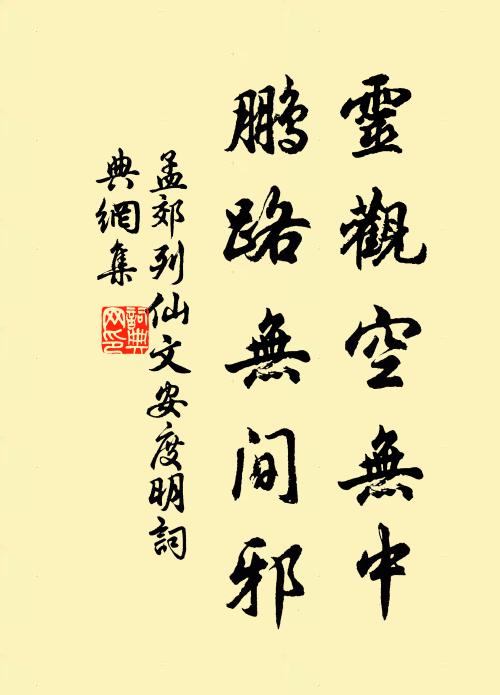 靈觀空無中
鵬路無間邪
孟郊列仙文安度明詞
典網集
詞典
网印